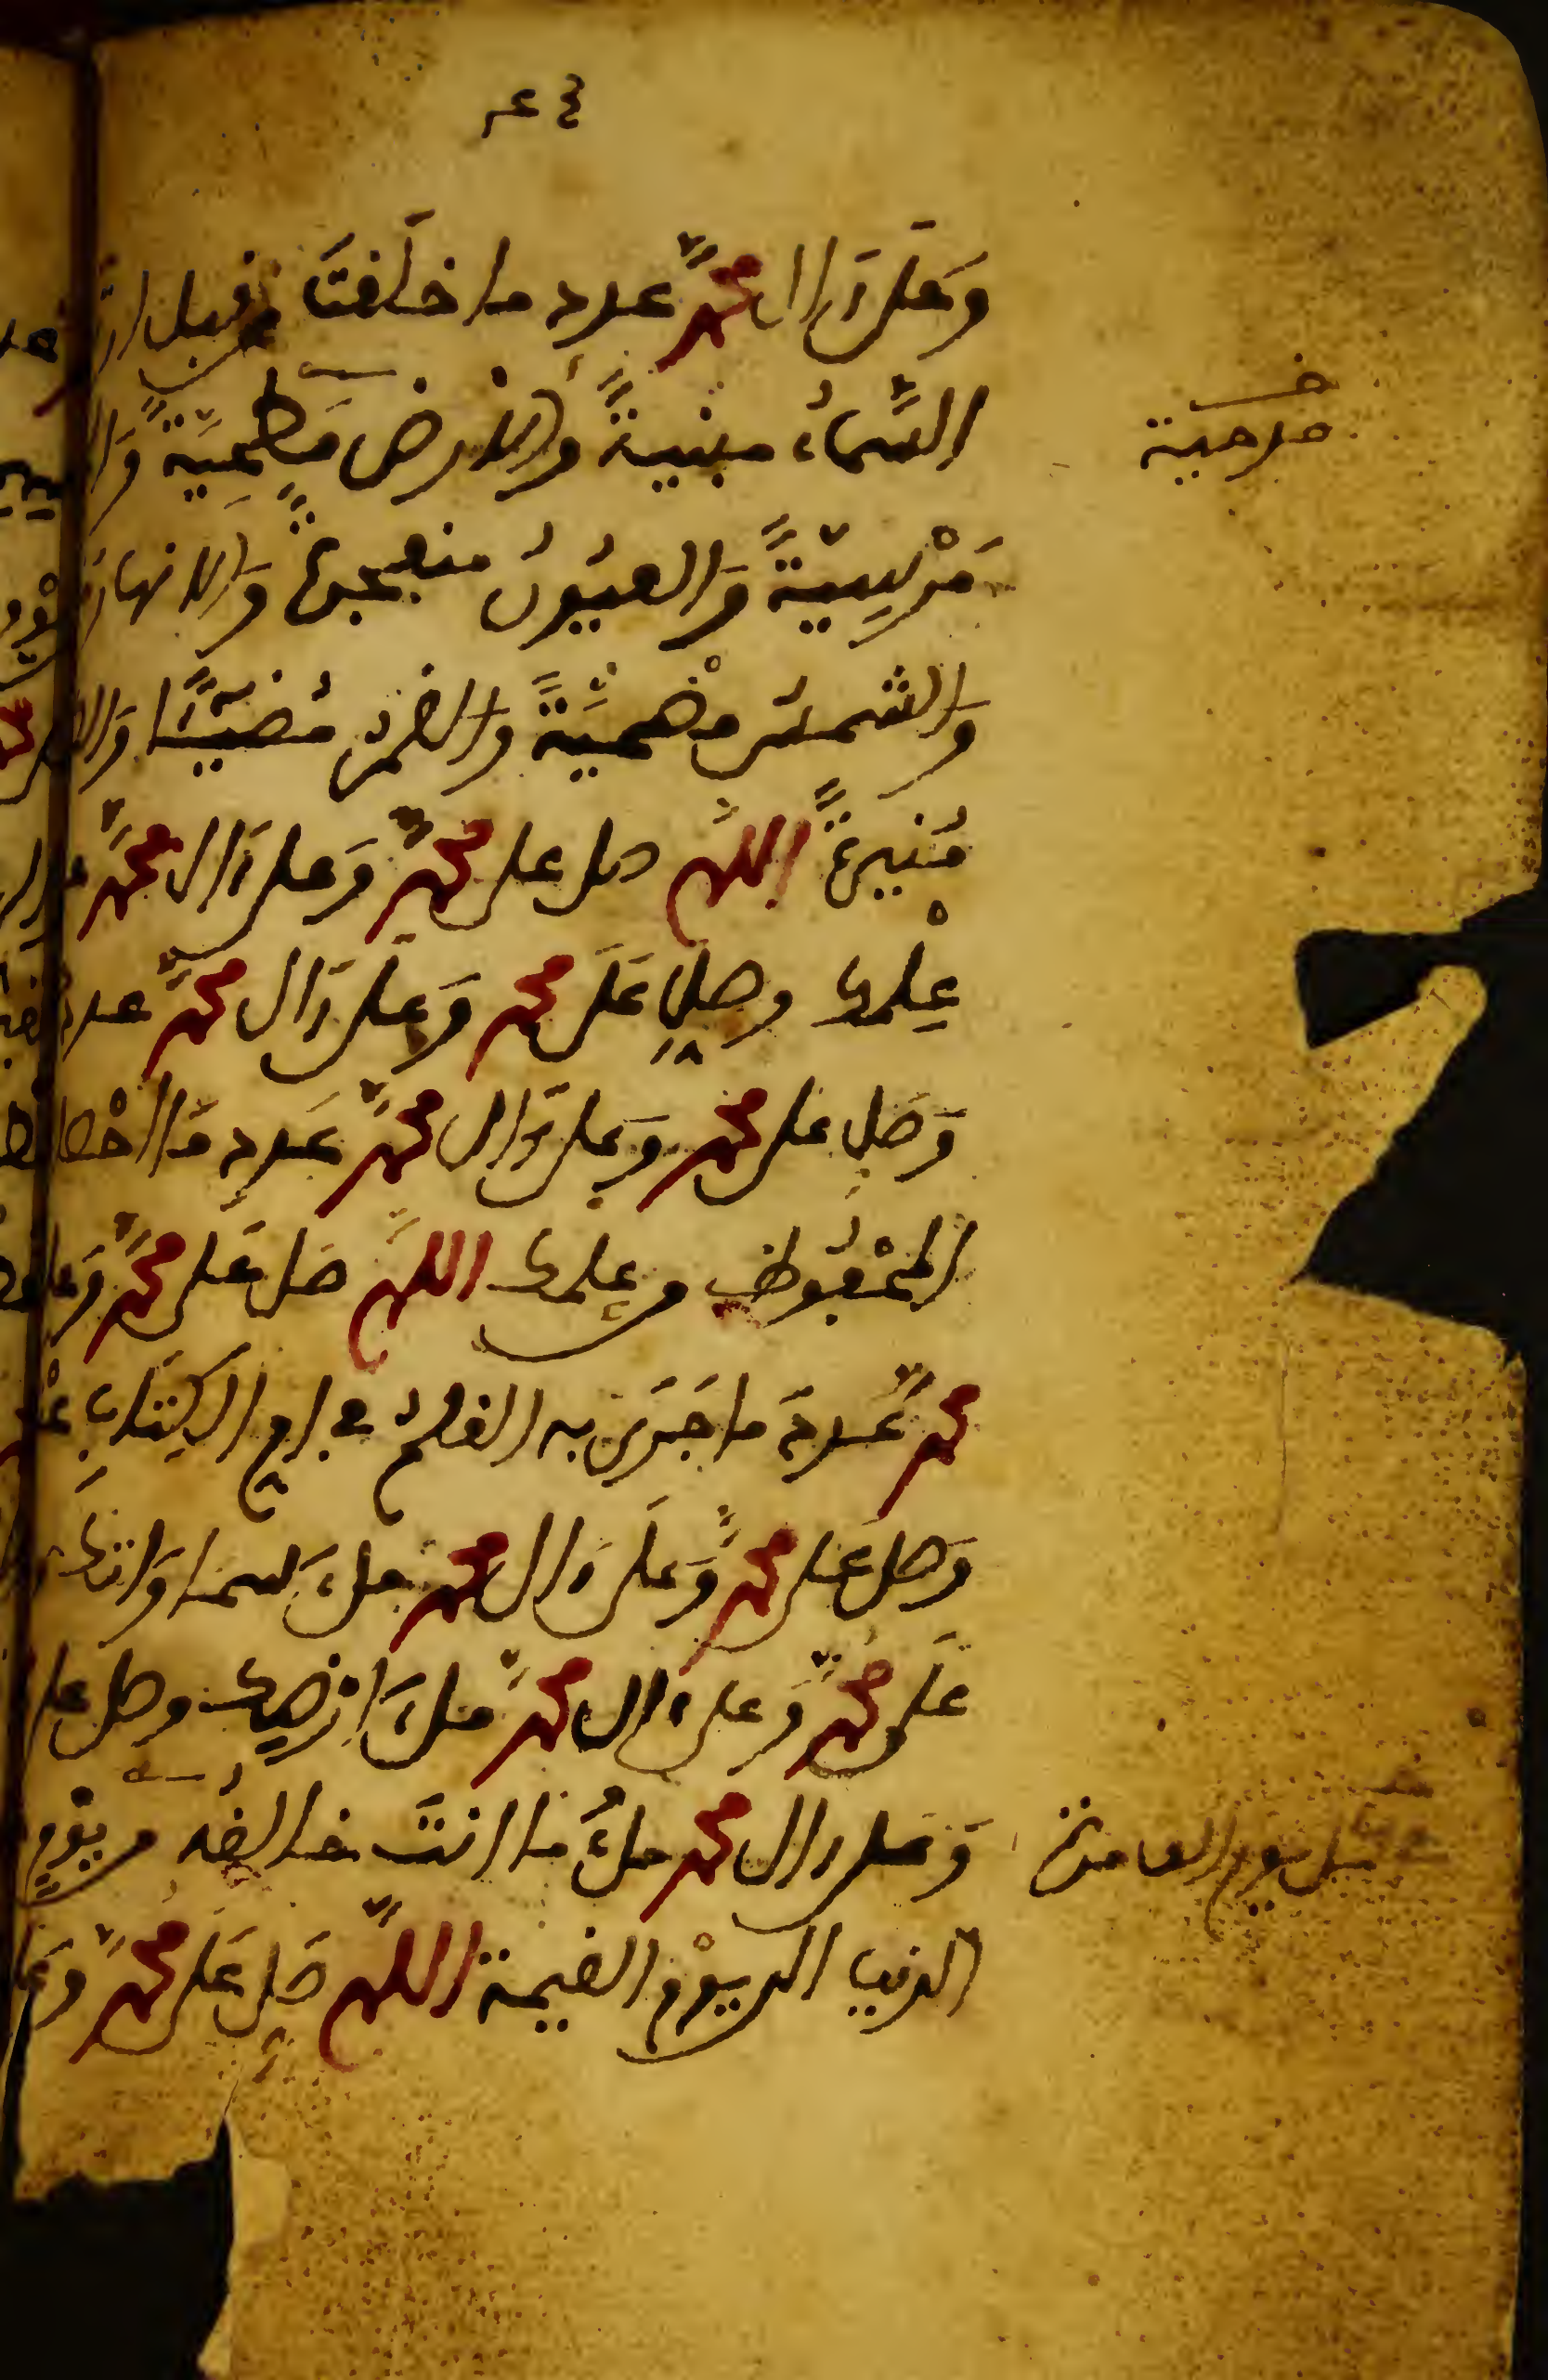 وَعَلَى ءَالِ مُحَمَّدٍ عدد ما خلقتَ من قبل ان
السَّمَاءُ مبنيةً وَالارضُ مَطْحِيَّةً وَا
مدحية
مَرْسِيَّةً وَالعيُونُ منفجرةً وَالانهارُ
وَالشمسُ مُضْحِيَّةً وَالقمرُ مُضِيًّا وَا
مُنيرةً اللهم صل على محمدٍ وَعلى ءَال محمدٍ
عِلْمك وصلِ عَلَى محمد وَعلى ءَال محمدٍ عدد
وَصَلِ على محمد وعلى ءَال محمدٍ عَدد مَا احْصا
المحْفُوظ من علمك اللهم صَل عَلى محمدٍ وَعلى
محمدٍ عَددَ ما جَرَى به القلمُ في ام الكِتَابِ
وَصل على محمدٍ وَعَلَى ءَال محمد ملءَ سمواتك
عَلَى محمدٍ وَعلى ءَال محمدٍ ملءَ ارضِك وصل على
وَعَلى ءال محمد ملءُ ما انتَ خالقُه من يوْمِ
الدنيا الى يوْم القيمة اللهم صَلِ عَلَى محمدٍ وعَلَى